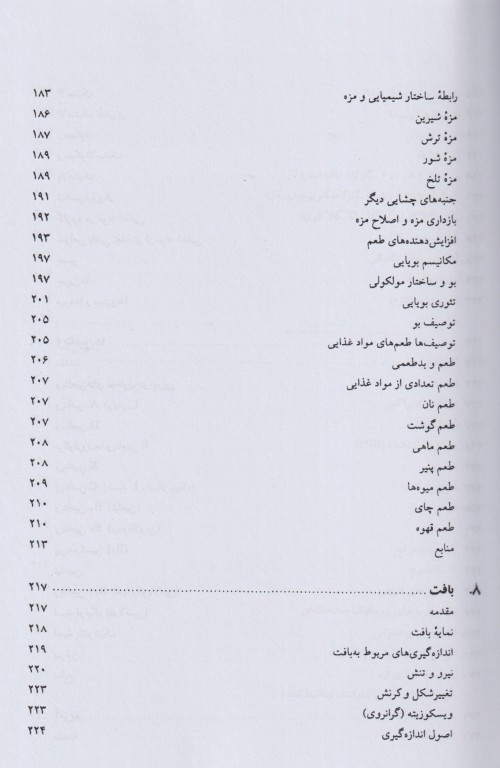 رابطهٔ ساختار شیمیایی و مزه ۱۸۳
مزهٔ شیرین ۱۸۶
مزهٔ ترش ۱۸۷
مزهٔ شور ۱۸۹
مزهٔ تلخ ۱۸۹
جنبه‌های چشایی دیگر ۱۹۱
بازداری مزه و اصلاح مزه ۱۹۲
افزایش‌دهنده‌های طعم ۱۹۳
مکانیسم بویایی ۱۹۷
بو و ساختار مولکولی ۱۹۷
تئوری بویایی ۲۰۱
توصیف بو ۲۰۵
توصیف‌ها طعم‌های مواد غذایی ۲۰۵
طعم و بدطعمی ۲۰۶
طعم تعدادی از مواد غذایی ۲۰۷
طعم نان ۲۰۷
طعم گوشت ۲۰۷
طعم ماهی ۲۰۸
طعم پنیر ۲۰۸
طعم میوه‌ها ۲۰۹
طعم چای ۲۱۰
طعم قهوه ۲۱۰
منابع ۲۱۳
۸. بافت ۲۱۷
مقدمه ۲۱۷
نمایهٔ بافت ۲۱۸
اندازه‌گیری‌های مربوط به‌بافت ۲۱۹
نیرو و تنش ۲۲۰
تغییرشکل و کرنش ۲۲۳
ویسکوزیته (گرانروی) ۲۲۳
اصول اندازه‌گیری ۲۲۴